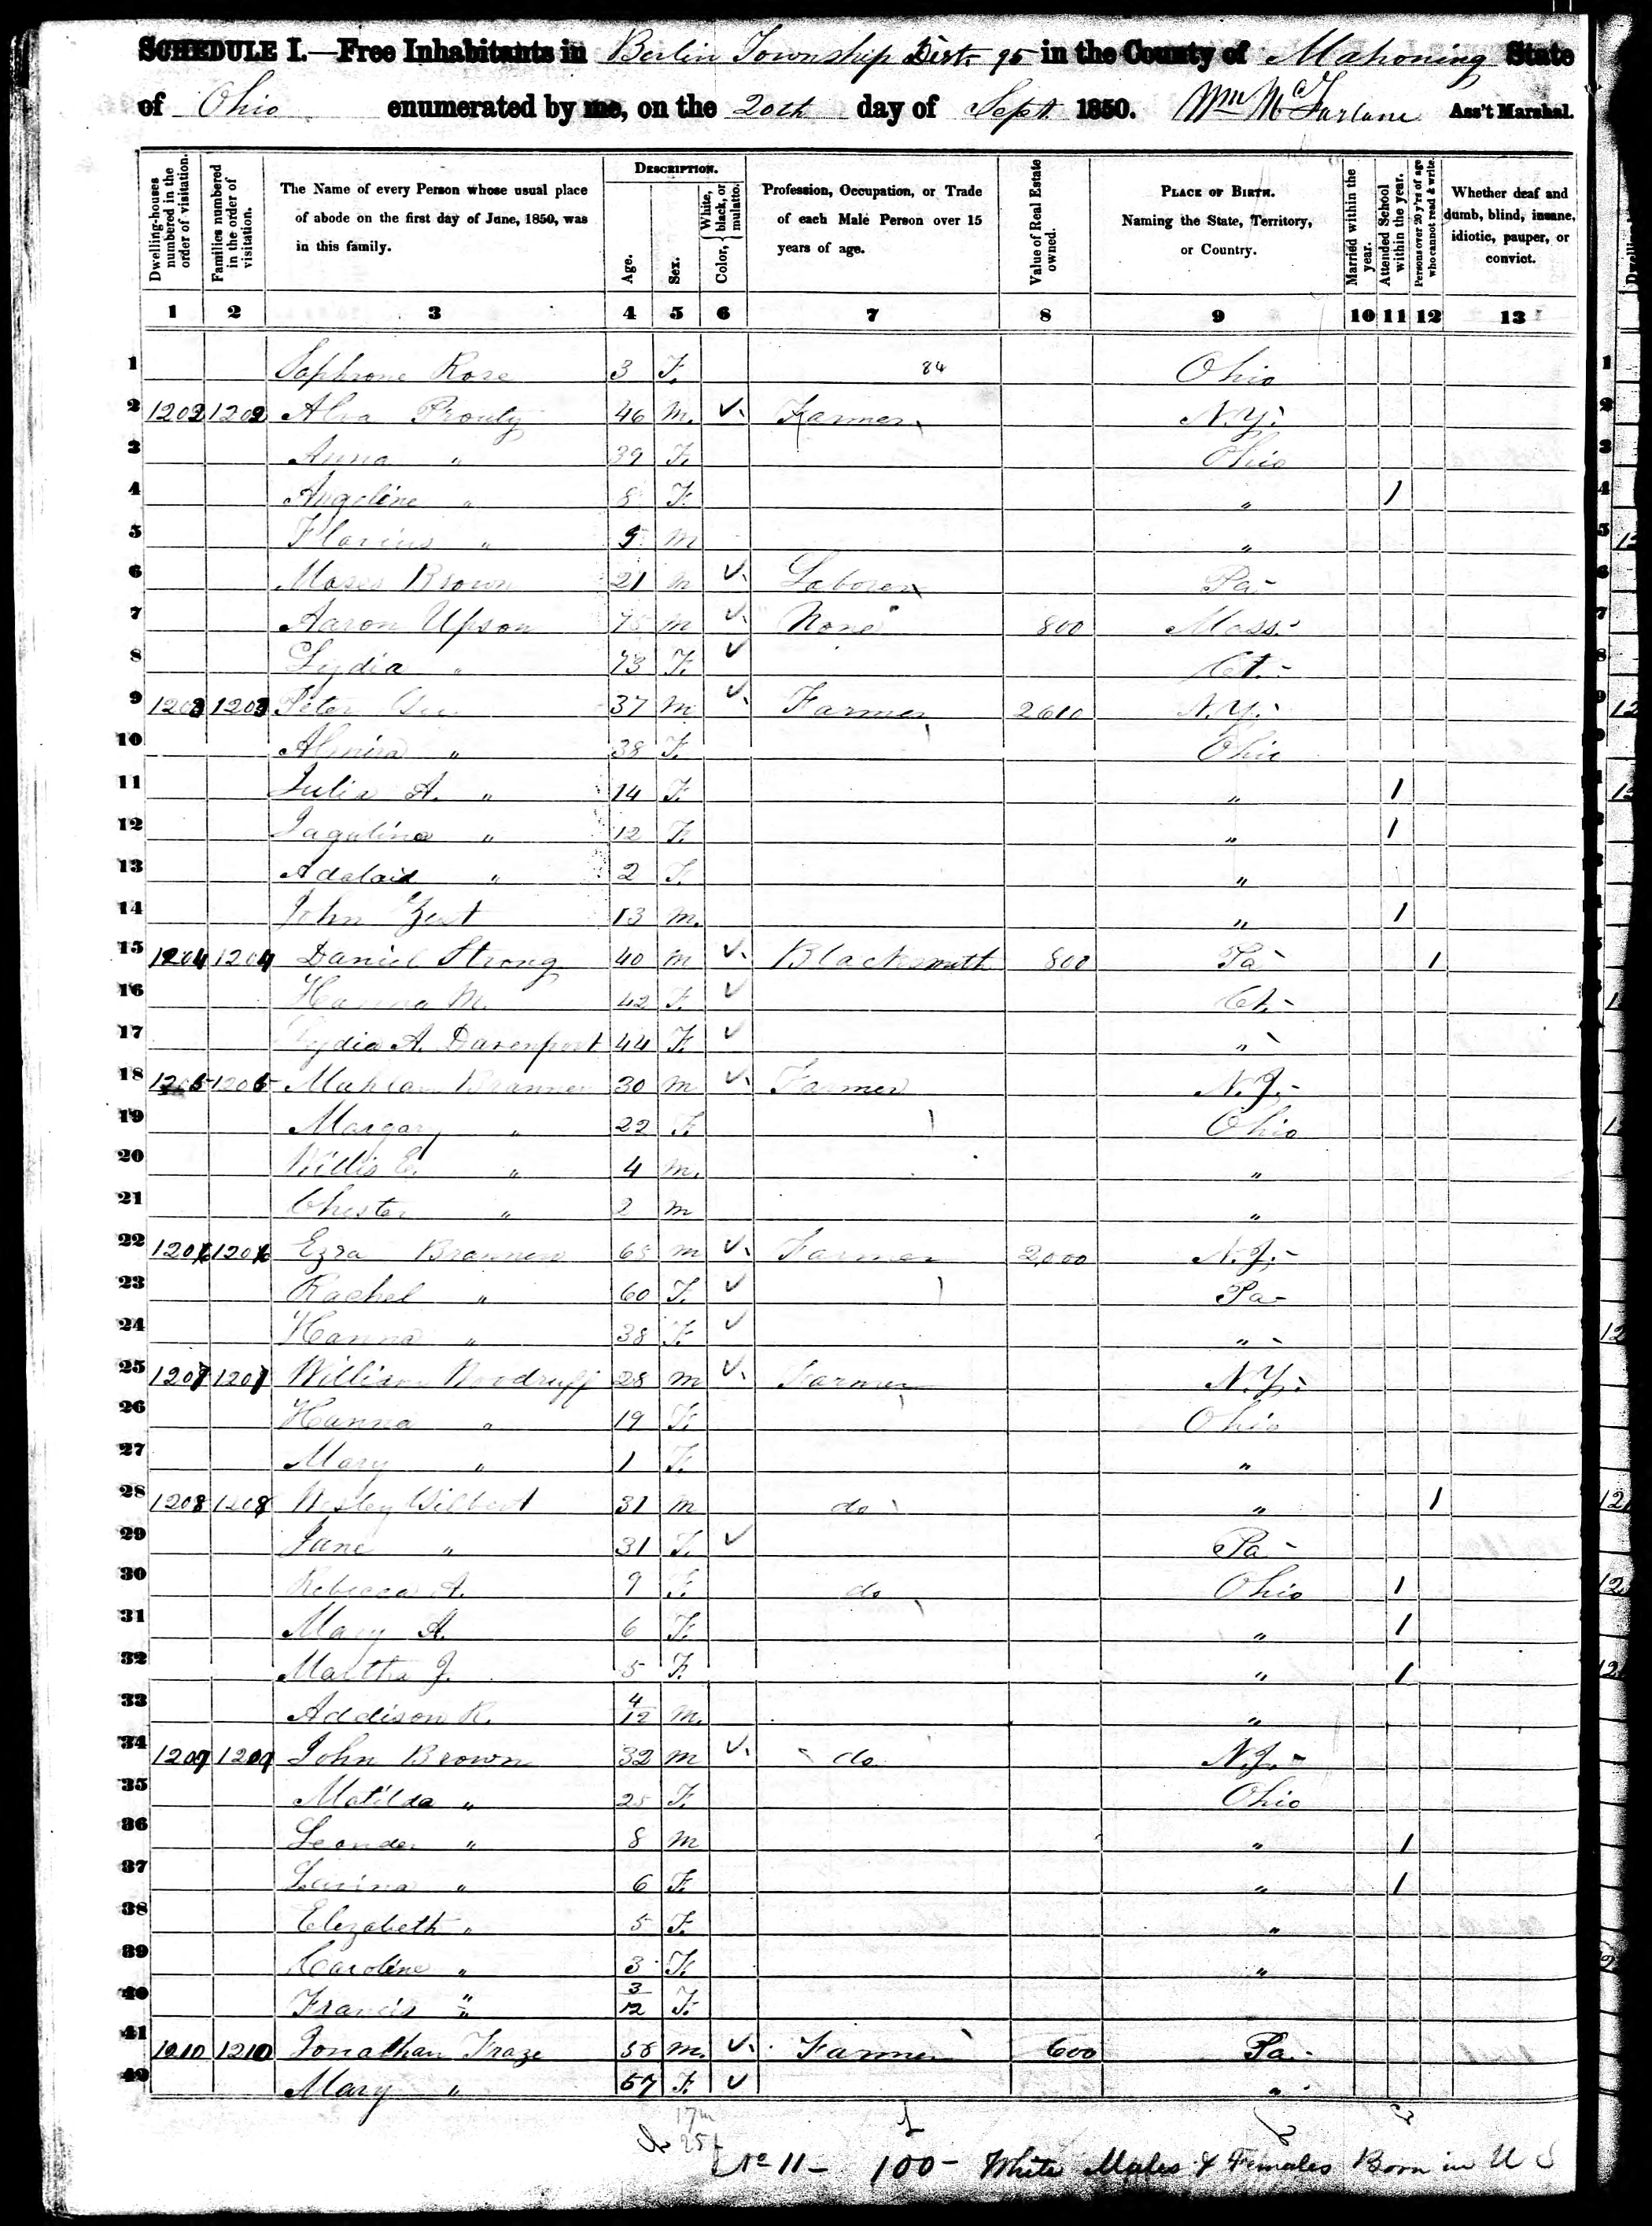 SCHEDULE I.—Free Inhabitants in Berlin Township Dist. 95 in the County of Mahoning State
of Ohio enumerated by me, on the 20th day of Sept 1850. Wm McFarlane Ass't Marshal.
Dwelling-houses numbered in the order of visitation.
Families numbered in the order of visitation.
The Name of every Person whose usual place of abode on the first day of June, 1850, was in this family.
DESCRIPTION.
Age.
Sex.
Color, White, black, or mulatto.
Profession, Occupation, or Trade of each Male Person over 15 years of age.
Value of Real Estate owned.
PLACE OF BIRTH. Naming the State, Territory, or Country.
Married within the year.
Attended School within the year.
Persons over 20 y'rs of age who cannot read & write.
Whether deaf and dumb, blind, insane, idiotic, pauper, or convict.
1 2 3 4 5 6 7 8 9 10 11 12 13
1 Rose 3 F. 84 Ohio
2 1202 1202 Alva Prouty 46 M. ✓. Farmer N.Y.
3 Anna " 39 F. Ohio
4 Angeline " 8 F. " 1
5 " M "
6 Moses Brown 21 M ✓. Laborer Pa
7 Aaron Upson 75 M ✓. None 800 Mass.
8 Lydia " 73 F. ✓ Ct.
9 1203 1203 Peter 37 M ✓. Farmer 2610 N.Y.
10 Almira " 38 F. Ohio
11 Julia A. " 14 F. " 1
12 " 12 F. " 1
13 Adalaid " 2 F. "
14 John 13 M. " 1
15 1204 1204 Daniel Strong 40 M ✓. Blacksmith 800 Pa 1
16 Hanna M. 42 F. ✓ Ct.
17 Lydia A. Davenport 44 F. ✓ "
18 1205 1205 30 M ✓. Farmer N.J.
19 Margary " 22 F. Ohio
20 Willis E. " 4 M. "
21 Chester " 2 M "
22 1206 1206 Ezra M ✓. Farmer 2,000 N.J.
23 Rachel " 60 F. ✓ Pa
24 Hanna " 38 F. ✓ "
25 1207 1207 William Woodruff 28 M ✓. Farmer N.Y.
26 Hanna " 19 F. Ohio
27 Mary " 1 F. "
28 1208 1208 Wesley Gilbert 31 M do " 1
29 Jane " 31 F. ✓ Pa
30 Rebecca A. 9 F. do Ohio 1
31 Mary A. 6 F. " 1
32 Martha J. 5 F. " 1
33 Addison R. 4/12 M. "
34 1209 1209 John Brown 32 M ✓. do N.J.
35 Matilda " 25 F. Ohio
36 Leander " 8 M " 1
37 Lavina " 6 F. " 1
38 Elizabeth " 5 F. "
39 Caroline " 3 F. "
40 Francis " 3/12 F.
41 1210 1210 Jonathan Fraze 58 M. ✓. Farmer 600 Pa.
42 Mary " 57 F. ✓ "
17 m
25 f
No 11 – 100 – White Males & Females Born in U S